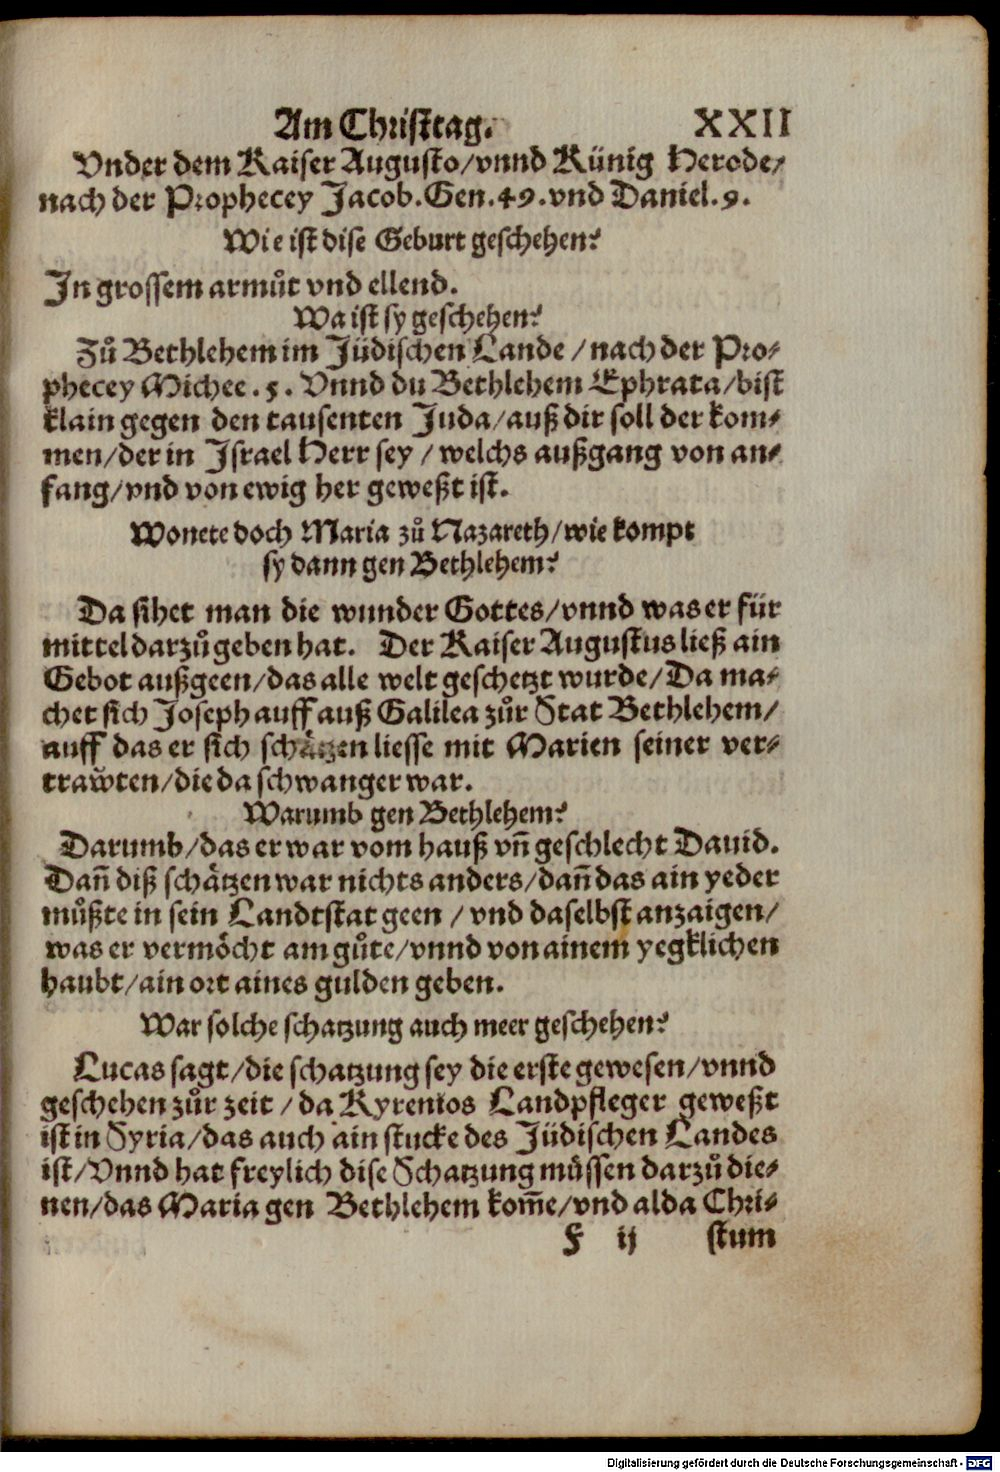 Am Christtag. XXII
Vnder dem Kaiser Augusto/vnnd Künig Herode/
nach der Prophecey Jacob.Gen.49.vnd Daniel.9.
Wie ist dise Geburt geschehen?
In grossem armůt vnd ellend.
Wa ist sy geschehen?
Zů Bethlehem im Jüdischen Lande /nach der Pro-
phecey Michee.5. Vnnd du Bethlehem Ephrata/bist
klain gegen den tausenten Juda/auß dir soll der kom-
men/der in Israel Herr sey /welchs außgang von an-
fang/vnd von ewig her geweßt ist.
Wonete doch Maria zů Nazareth/wie kompt
sy dann gen Bethlehem?
Da sihet man die wunder Gottes/vnnd was er für
mittel darzů geben hat. Der Kaiser Augustus ließ ain
Gebot außgeen/das alle welt geschetzt wurde/Da ma-
chet sich Joseph auff auß Galilea zůr Stat Bethlehem/
auff das er sich schätzen liesse mit Marien seiner ver-
traẅten/die da schwanger war.
Warumb gen Bethlehem?
Darumb/das er war vom hauß vn̄ geschlecht Dauid.
Dan̄ diß schätzen war nichts anders/dan̄ das ain yeder
můßte in sein Landtstat geen /vnd daselbst anzaigen/
was er vermöcht am gůte/vnnd von ainem yegklichen
haubt/ain ort aines gulden geben.
War solche schatzung auch meer geschehen?
Lucas sagt/die schatzung sey die erste gewesen/vnnd
geschehen zůr zeit /da Kyrenios Landpfleger geweßt
ist in Syria/das auch ain stucke des Jüdischen Landes
ist/Vnnd hat freylich dise Schatzung müssen darzů die-
nen/das Maria gen Bethlehem kom̄e/vnd alda Chri-
F ij stum
Digitalisierung gefördert durch die Deutsche Forschungsgemeinschaft - DFG